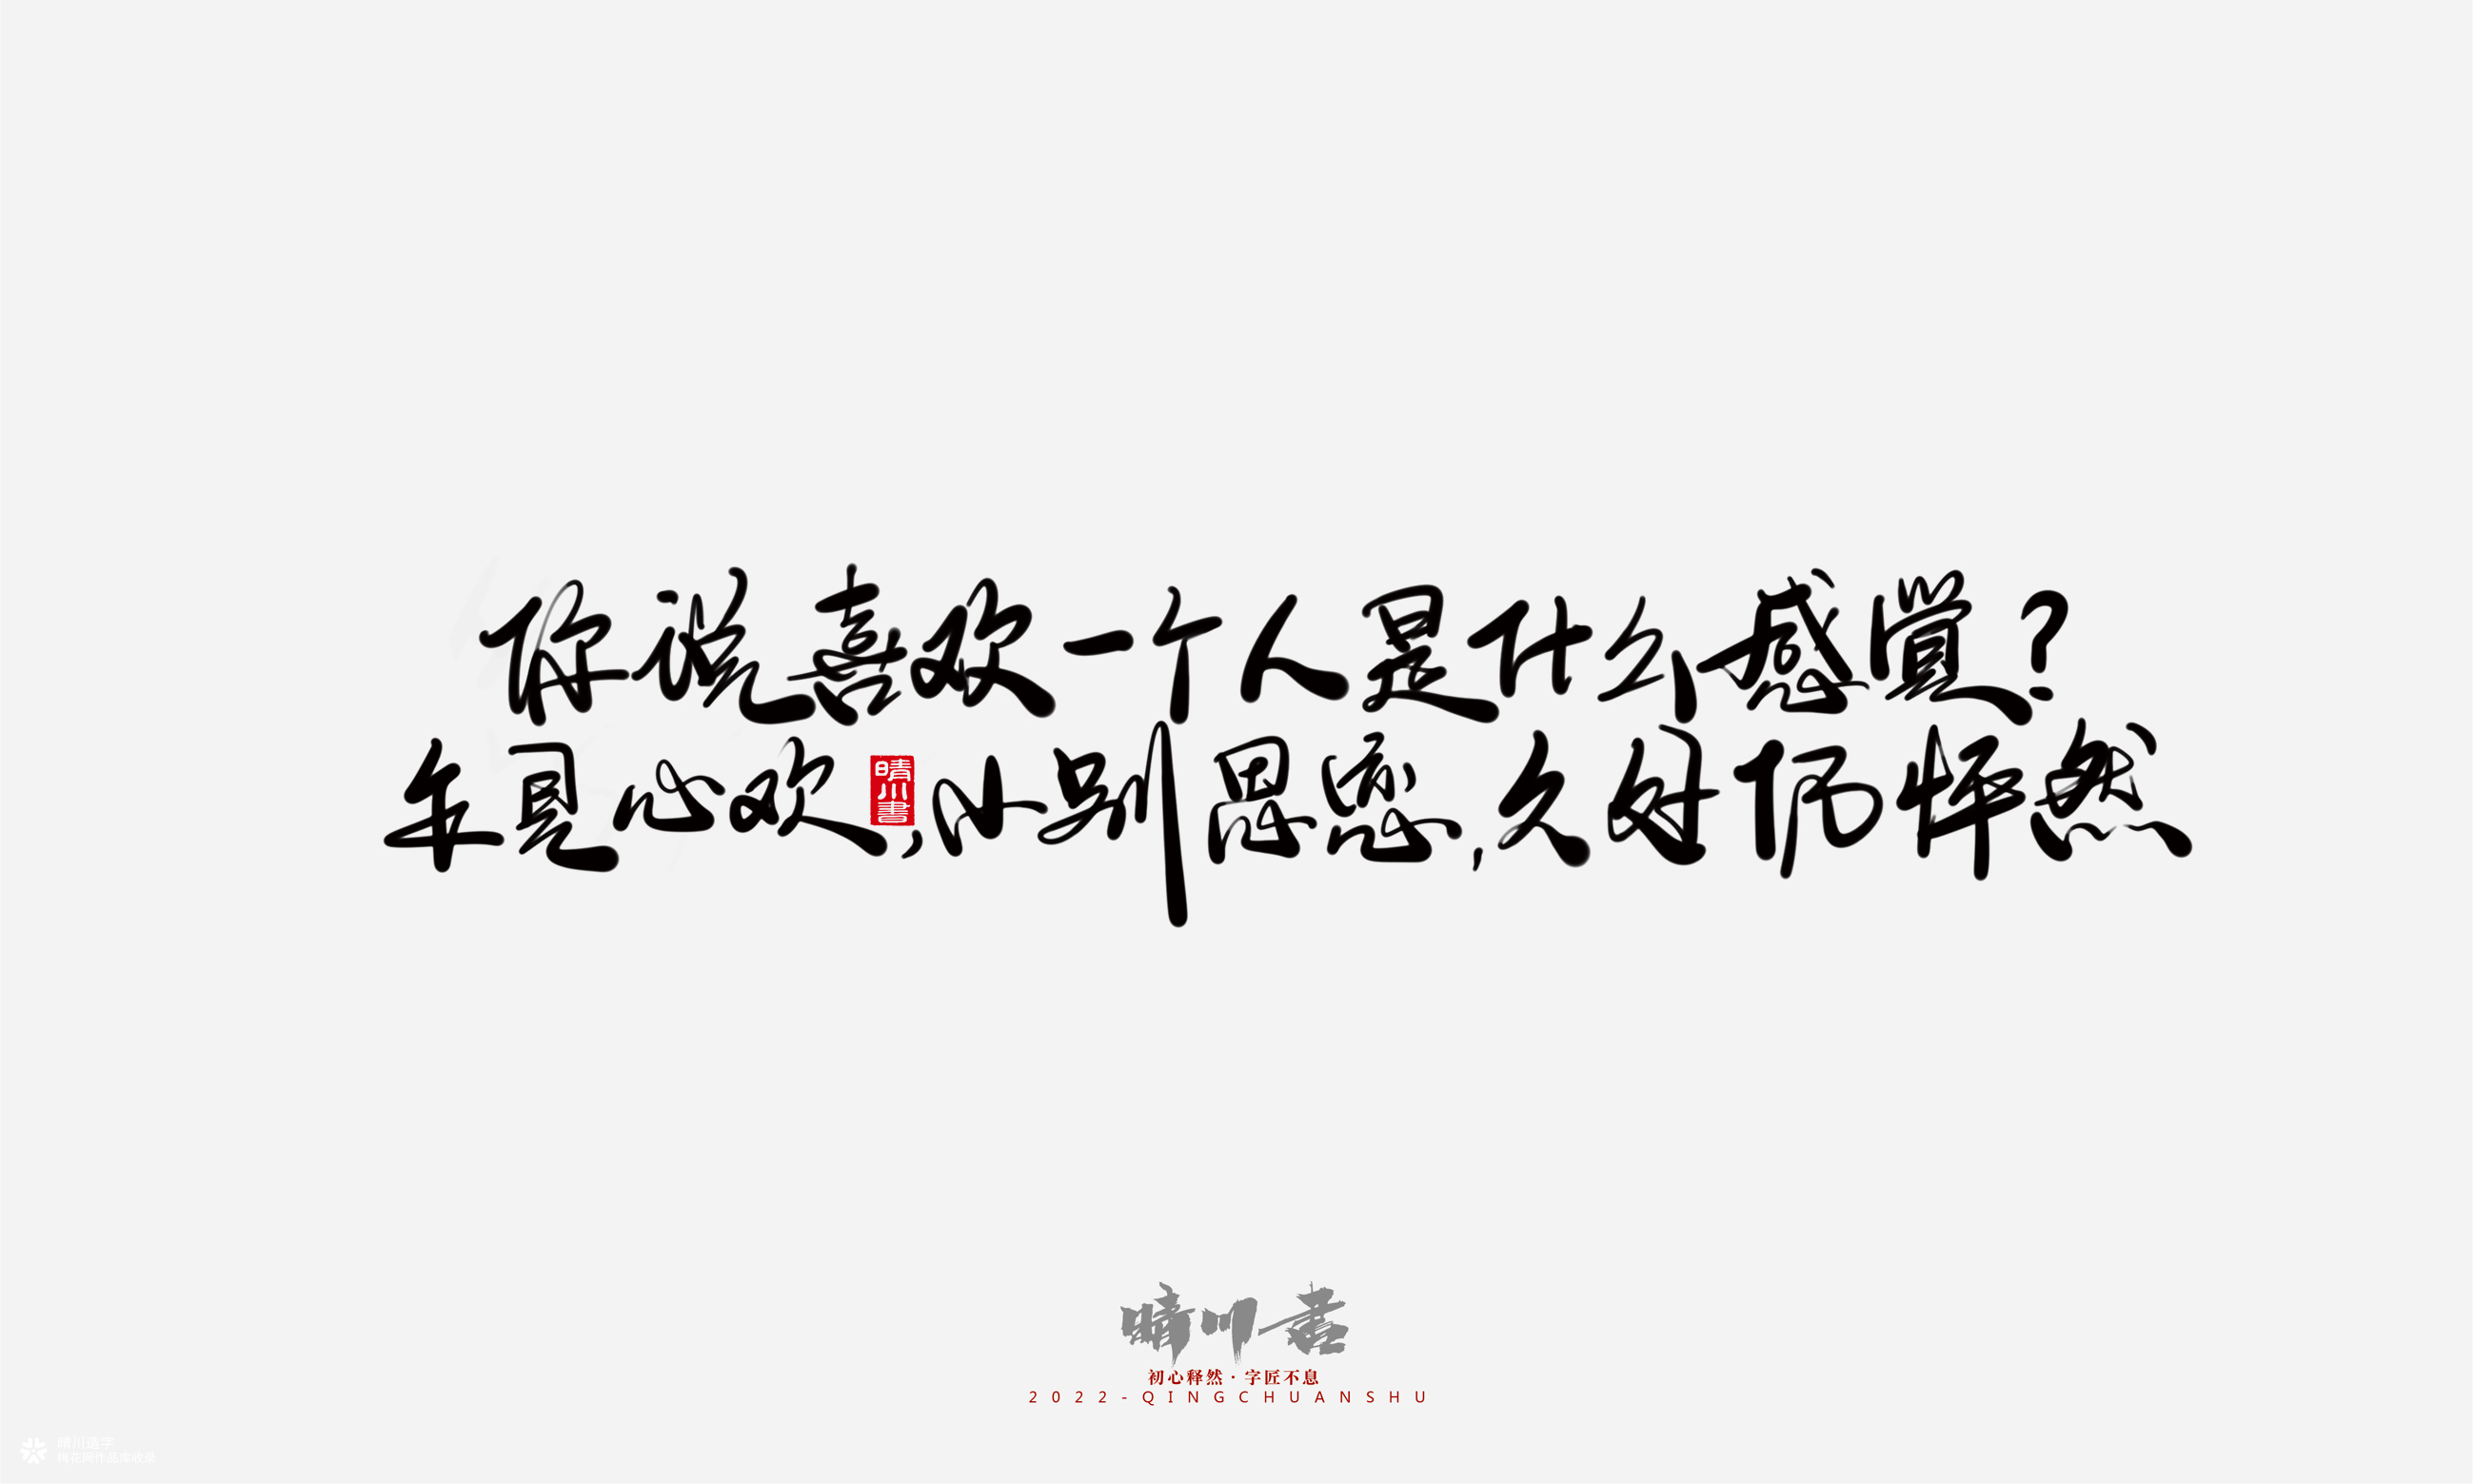 你说喜欢一个人是什么感覺?
乍见心欢,小别思恋,久处仍怦然
晴川書
晴川書
初心释然·字匠不息
2022-QINGCHUANSHU
晴川造字
梅花网作品库收录